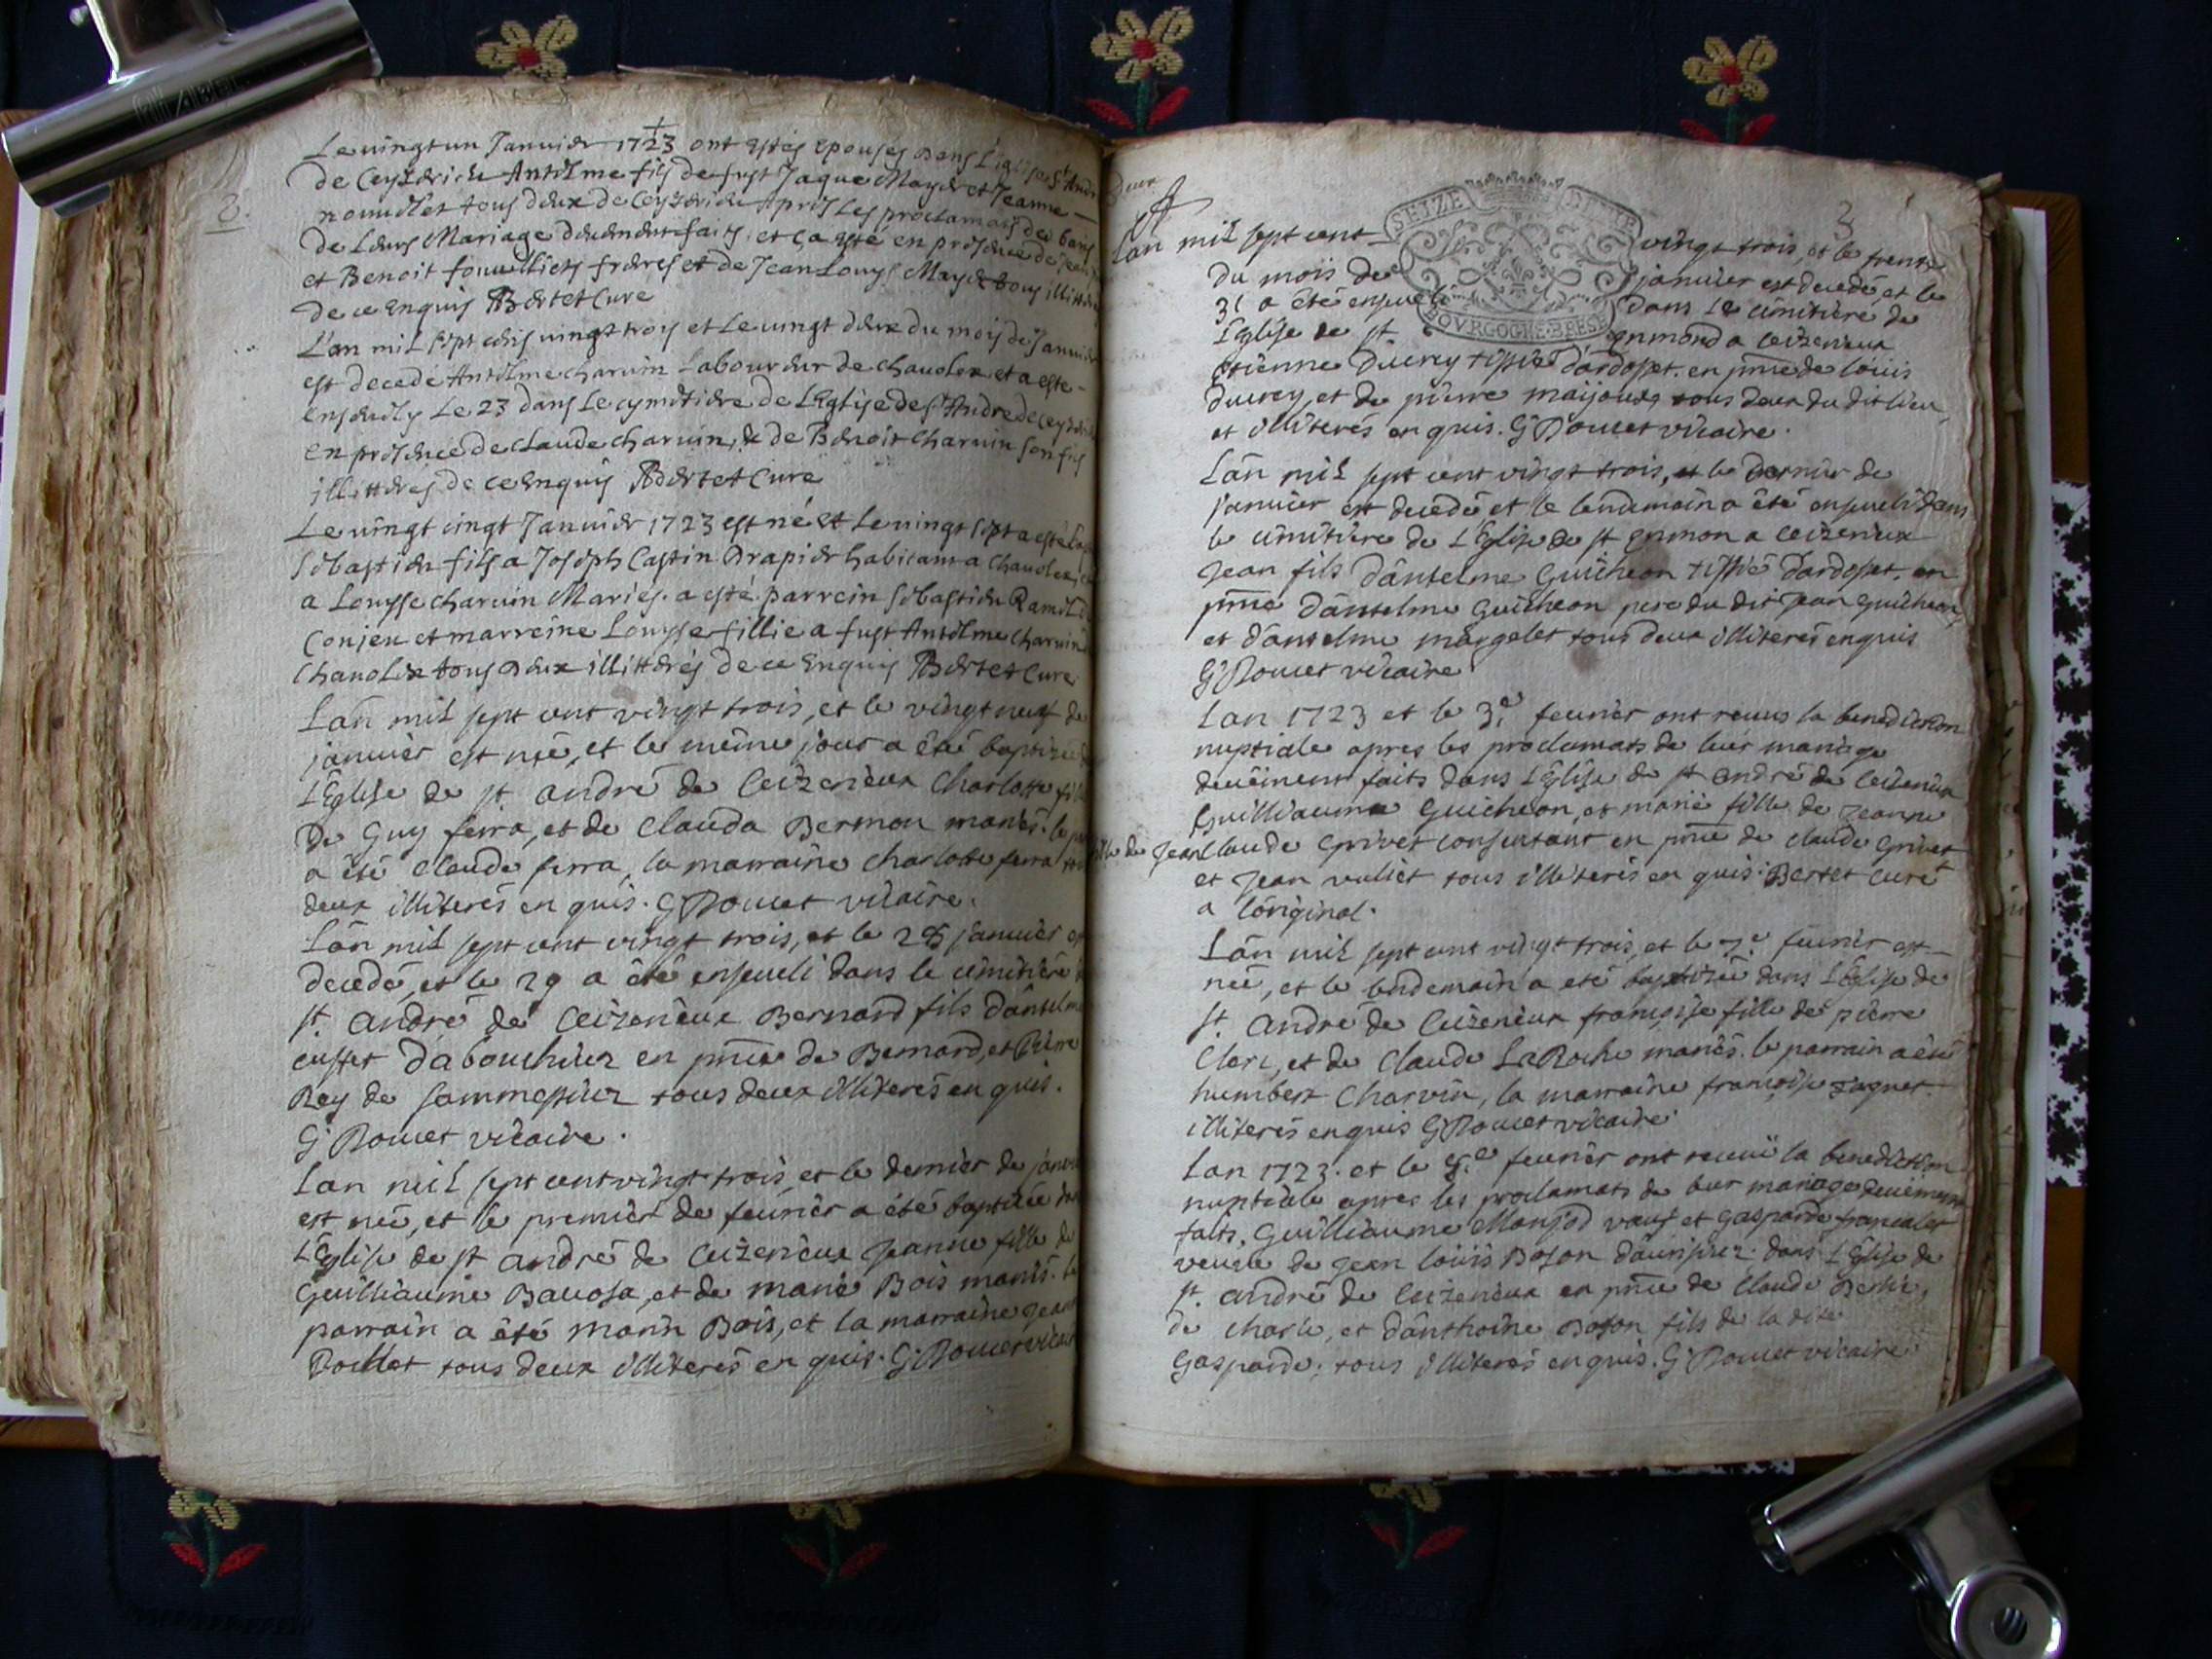 2.
Le vingt un Janvier 1723 ont estés epousés Dans L'eglise St Andr
de Ceyzerieu Antelme fils de fust Jaque Mayet et Jeanne
tous deux de Ceyzerieu Apres Les proclamats de bans
de Leurs Mariage duement faits, et ça esté en presence de Jean
et Benoit fouvilliets freres et de Jean Louys Mayet tous illitt
de ce Enquis Bertet Cure
L'an mil sept cens vingt trois et Le vingt deux du mois de Janvier
est decedé Antelme charvin Labourur de chavolex et a esté
Ensevely Le 23 dans Le cymetiere de L'Eglise de St Andre de Ceyzeri
en presence de Claude charvin, & de Benoit Charvin son fils
illitterés de ce Enquis Bertet Cure
Le vingt cinqt Janvier 1723 est né et Le vingt sept a esté
Sebastien fils a Joseph Castin Drapier habitant a Chavolex
a Louyse charvin Mariés. a esté parrein Sebastien Ramel
Conjeu et marreine Louyse fillie a fust Antelme Charvin
Chavolex tous deux illitterés de ce Enquis Bertet Cure
Lan mil sept cent vingt trois, et le vingt neuf de
janvier est née, et le même jour a été baptizée
L'Eglise de st. andré de Ceizerieux Charlotte fille
de Guy ferra, et de Clauda Bermon mariés. le
a été Claude ferra, la marraine Charlotte ferra
deux illiterés enquis. G Roucet vicaire.
Lan mil sept cent vingt trois, et le 28 janvier
decedé, et le 29 a été enseveli dans le cimitière
st. andré de Ceizerieux Bernard fils d'antelm
cusset d'abouchiez en pnce de Bernard, et Pierre
Rey de Sammesiez tous deux illiterés enquis.
G Roucet vicaire.
Lan mil sept cent vingt trois, et le dernier de janv
est née, et le premier de fevrier a été baptizée
L'Eglise de st andré de Ceizerieux jeanne fille de
Guilliaume Bavosa, et de marie Bois mariés. le
parrain a été marin Bois, et la marraine jean
Roillet tous deux illiterés enquis. G Roucet vicai
deux
2
SEIZE DENIE
BOVRGOGNE·BRESE
Lan mil sept cent vingt trois, et le trente
du mois de janvier est decedé et le
31 a été enseveli dans Le cimitière de
L'Eglise de st enmond a Ceizerieux
Etienne Ducrey tissié d'ardosset. en pnce de loüis
ducrey, et de pierre maijoux, tous deux du dit lieu
et illiterés enquis. G Roucet vicaire.
Lan mil sept cent vingt trois, et le dernier de
janvier est decedé et le lendemain a été enseveli dans
le cimitière de L'Eglise de st Enmon a Ceizerieux
Jean fils d'antelme Guicheon tissié d'ardosset. en
pnce d'antelme Guicheon pere du dit Jean Guicheon,
et d'anselme margelet tous deux illiterés enquis
G Roucet vicaire
Lan 1723 et le 3e fevrier ont receus la benediction
nuptiale apres les proclamats de leur mariage
deuëment faits dans L'Eglise de st andré de Ceizerieux
Guilliaume Guicheon, et marie fille de Jeanne
fille de Jean Claude Grivet consentant en pnce de claude Grivet
et Jean vuliet tous illiterés enquis. Bertet Curé
a l'original.
Lan mil sept cent vingt trois, et le 7e fevrier est
née, et le lendemain a eté baptizée dans L'Eglise de
st. andré de Ceizerieux françoise fille de pierre
Clerc, et de Claude LaRoche mariés. le parrain a été
humbert Charvin, la marraine françoise jaquet.
illiterés enquis G Roucet vicaire
Lan 1723. et le 8e fevrier ont receuë la benediction
nuptiale apres les proclamats de leur mariage deuëment
faits, Guilliaume Monjod veuf et Gasparde francalet
veuve de Jean loüis Boson dans L'Eglise de
st. andré de Ceizerieux en pnce de Claude Berlie,
de charle, et d'anthoine Boson fils de la dite
Gasparde, tous illiterés enquis. G Roucet vicaire